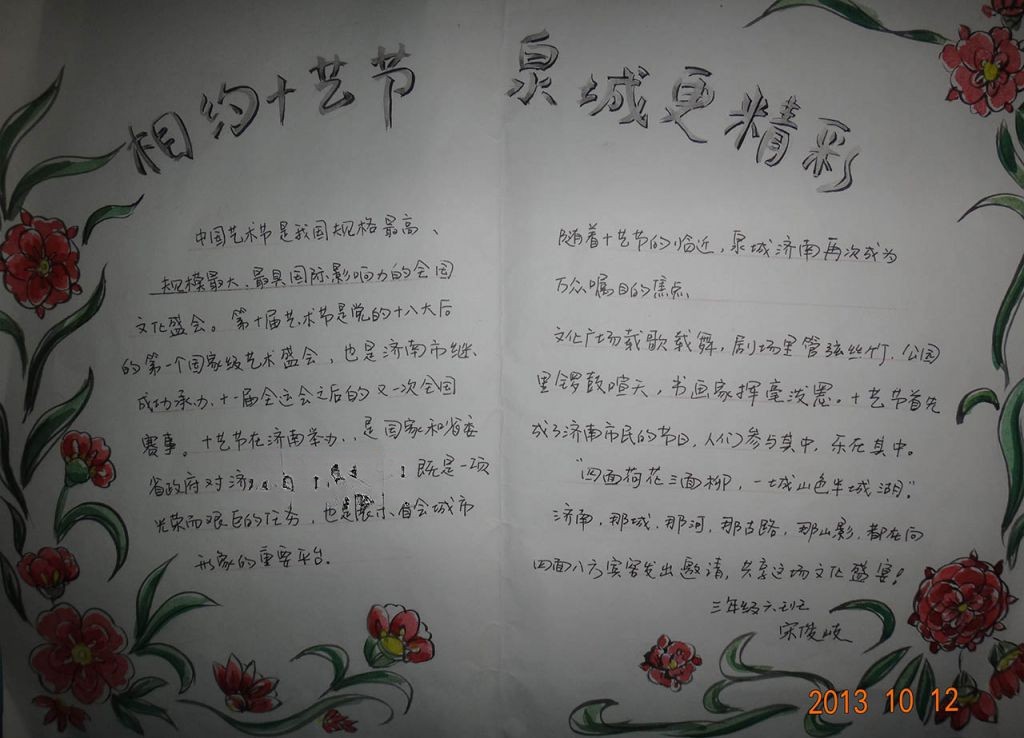 相约十艺节 泉城更精彩
中国艺术节是我国规格最高、
规模最大、最具国际影响力的全国
文化盛会。第十届艺术节是党的十八大后
的第一个国家级艺术盛会,也是济南市继
成功承办十一届全运会之后的又一次全国
赛事。十艺节在济南举办,是国家和省委
省政府对济 既是一项
光荣而艰巨的任务,也是展示省会城市
形象的重要平台.
随着十艺节的临近,泉城济南再次成为
万众瞩目的焦点
文化广场载歌载舞,剧场里管弦丝竹,公园
里锣鼓喧天,书画家挥毫泼墨。十艺节首先
成了济南市民的节日,人们参与其中,乐在其中。
“四面荷花三面柳,一城山色半城湖.”
济南,那城,那河,那古路,那山影,都在向
四面八方宾客发出邀请,共享这场文化盛宴!
三年级六班
宋俊岐
2013 10 12